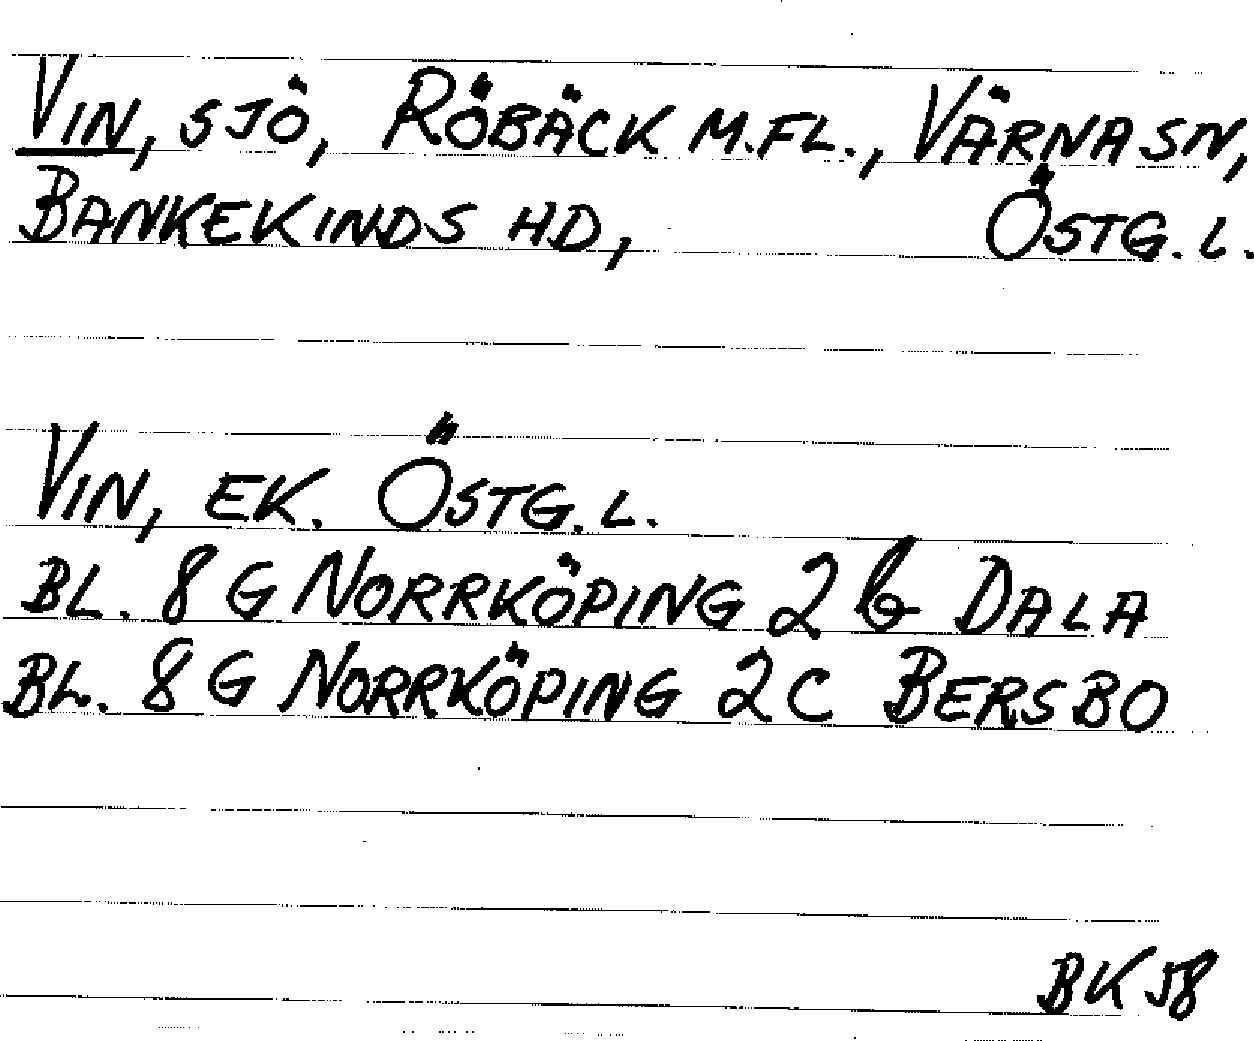 VIN, SJÖ, RÖBÄCK M.FL., VÄRNA SN,
BANKEKINDS HD, ÖSTG. L.
VIN, EK. ÖSTG. L.
BL. 8 G NORRKÖPING 2 b DALA
BL. 8 G NORRKÖPING 2 C BERSBO
BK 58